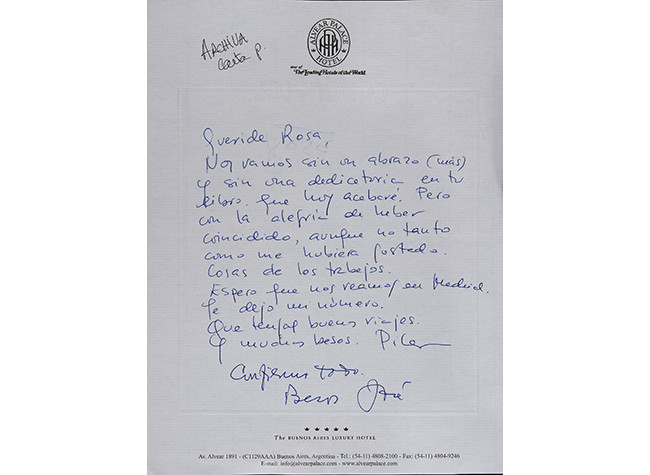 ALVEAR PALACE
HOTEL
ARCHIVA
Carta p.
one of
The Leading Hotels of the World
Querida Rosa,
Nos vamos sin un abrazo (más)
y sin una dedicatoria en tu
libro. que hoy acabaré. Pero
con la alegría de haber
coincidido, aunque no tanto
como me hubiera gustado.
Cosas de los trabajos.
Espero que nos veamos en Madrid.
Te dejo un número.
Que tengas buenos viajes.
Y muchos besos. Pilar
Confirmo todo.
Besos José
The BUENOS AIRES LUXURY HOTEL
Av. Alvear 1891 - (C1129AAA) Buenos Aires, Argentina - Tel.: (54-11) 4808-2100 - Fax: (54-11) 4804-9246
E-mail: info@alvearpalace.com - www.alvearpalace.com